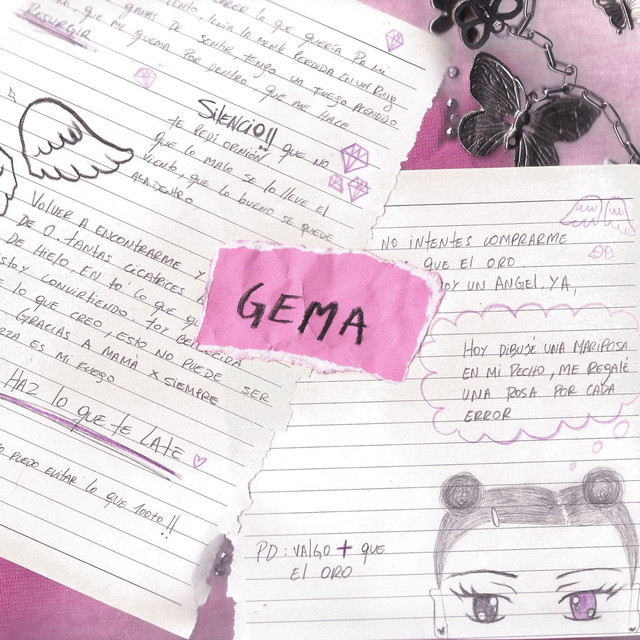 LO QUE QUERÍA
MENTE PERDIDA EN UN
RESURGIR
GANAS DE SENTIR, TENGO UN FUEGO PRENDIDO
QUE ME QUEMA POR DENTRO QUE ME HACE
SILENCIO!!
TE PEDÍ OPINIÓN QUE NO
QUE LO MALO SE LO LLEVE EL
VIENTO, QUE LO BUENO SE QUEDE
ADENTRO
VOLVER A ENCONTRARME Y
DE 0. TANTAS CICATRICES
DE HIELO EN TO' LO QUE
CONVIRTIENDO, TOY BELLECIDA
LO QUE CREO, ESTO NO PUEDE SER
GRACIAS A MAMÁ X SIEMPRE
ES MI FUEGO
HAZ LO QUE TE LATE
PUEDO EVITAR LO QUE TODO!!
GEMA
NO INTENTES COMPRARME
QUE EL ORO
UN ANGEL. YA,
HOY DIBUJÉ UNA MARIPOSA
EN MI PECHO, ME REGALÉ
UNA ROSA POR CADA
ERROR
PD: VALGO + QUE
EL ORO